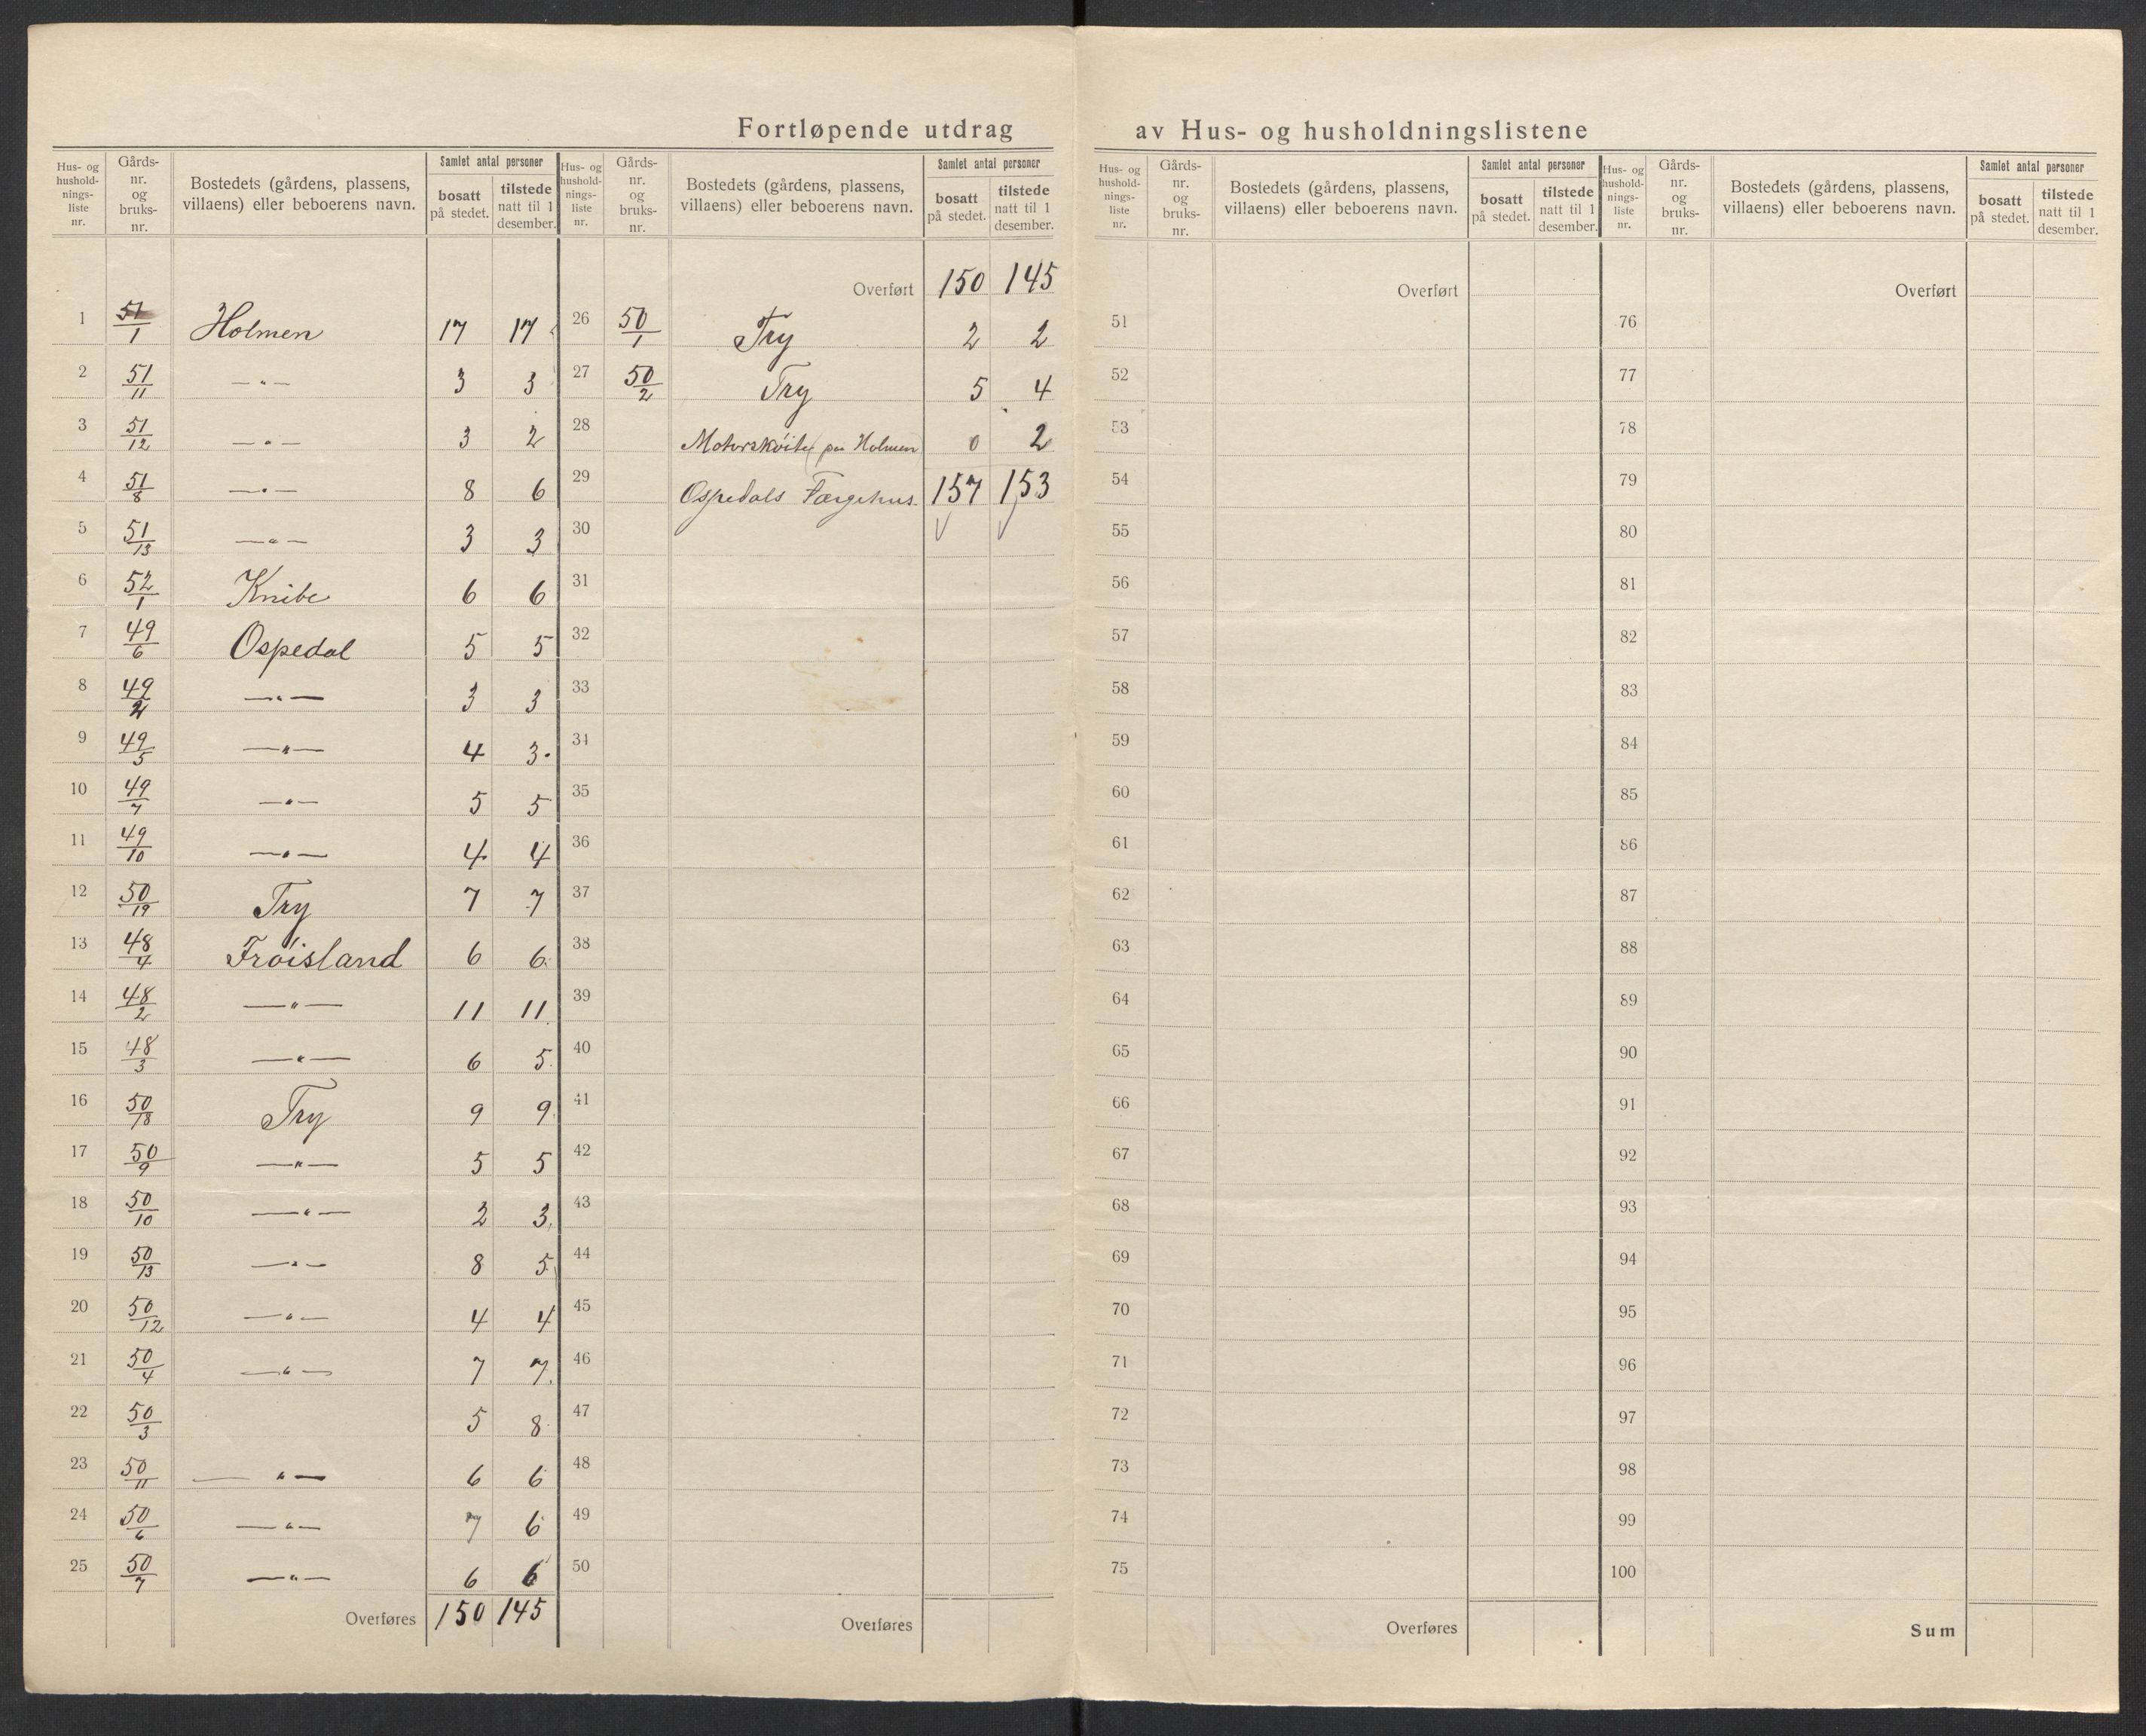 Fortløpende utdrag av Hus- og husholdningslistene
Hus- og hushold-nings-liste nr. | Gårds-nr. og bruks-nr. | Bostedets (gårdens, plassens, villaens) eller beboerens navn. | Samlet antal personer | bosatt på stedet. | tilstede natt til 1 desember.
1 51/1 Holmen 17 17
2 51/11 —"— 3 3
3 51/12 —"— 3 2
4 51/8 —"— 8 6
5 51/13 —"— 3 3
6 52/1 Knibe 6 6
7 49/6 Ospedal 5 5
8 49/2 —"— 3 3
9 49/5 —"— 4 3
10 49/7 —"— 5 5
11 49/10 —"— 4 4
12 50/19 Try 7 7
13 48/4 Frøisland 6 6
14 48/2 —"— 11 11
15 48/3 —"— 6 5
16 50/18 Try 9 9
17 50/9 —"— 5 5
18 50/10 —"— 2 3
19 50/13 —"— 8 5
20 50/12 —"— 4 4
21 50/4 —"— 7 7
22 50/3 5 8
23 50/11 —"— 6 6
24 50/6 —"— 7 6
25 50/7 —"— 6 6
Overføres 150 145
Hus- og hushold-nings-liste nr. | Gårds-nr. og bruks-nr. | Bostedets (gårdens, plassens, villaens) eller beboerens navn. | Samlet antal personer | bosatt på stedet. | tilstede natt til 1 desember.
Overført 150 145
26 50/1 Try 2 2
27 50/2 Try 5 4
28 Motorskøite paa Holmen 0 2
29 Ospedals Færgehus. 157 153
30
31
32
33
34
35
36
37
38
39
40
41
42
43
44
45
46
47
48
49
50
Overføres
Hus- og hushold-nings-liste nr. | Gårds-nr. og bruks-nr. | Bostedets (gårdens, plassens, villaens) eller beboerens navn. | Samlet antal personer | bosatt på stedet. | tilstede natt til 1 desember.
Overført
51
52
53
54
55
56
57
58
59
60
61
62
63
64
65
66
67
68
69
70
71
72
73
74
75
Overføres
Hus- og hushold-nings-liste nr. | Gårds-nr. og bruks-nr. | Bostedets (gårdens, plassens, villaens) eller beboerens navn. | Samlet antal personer | bosatt på stedet. | tilstede natt til 1 desember.
Overført
76
77
78
79
80
81
82
83
84
85
86
87
88
89
90
91
92
93
94
95
96
97
98
99
100
Sum